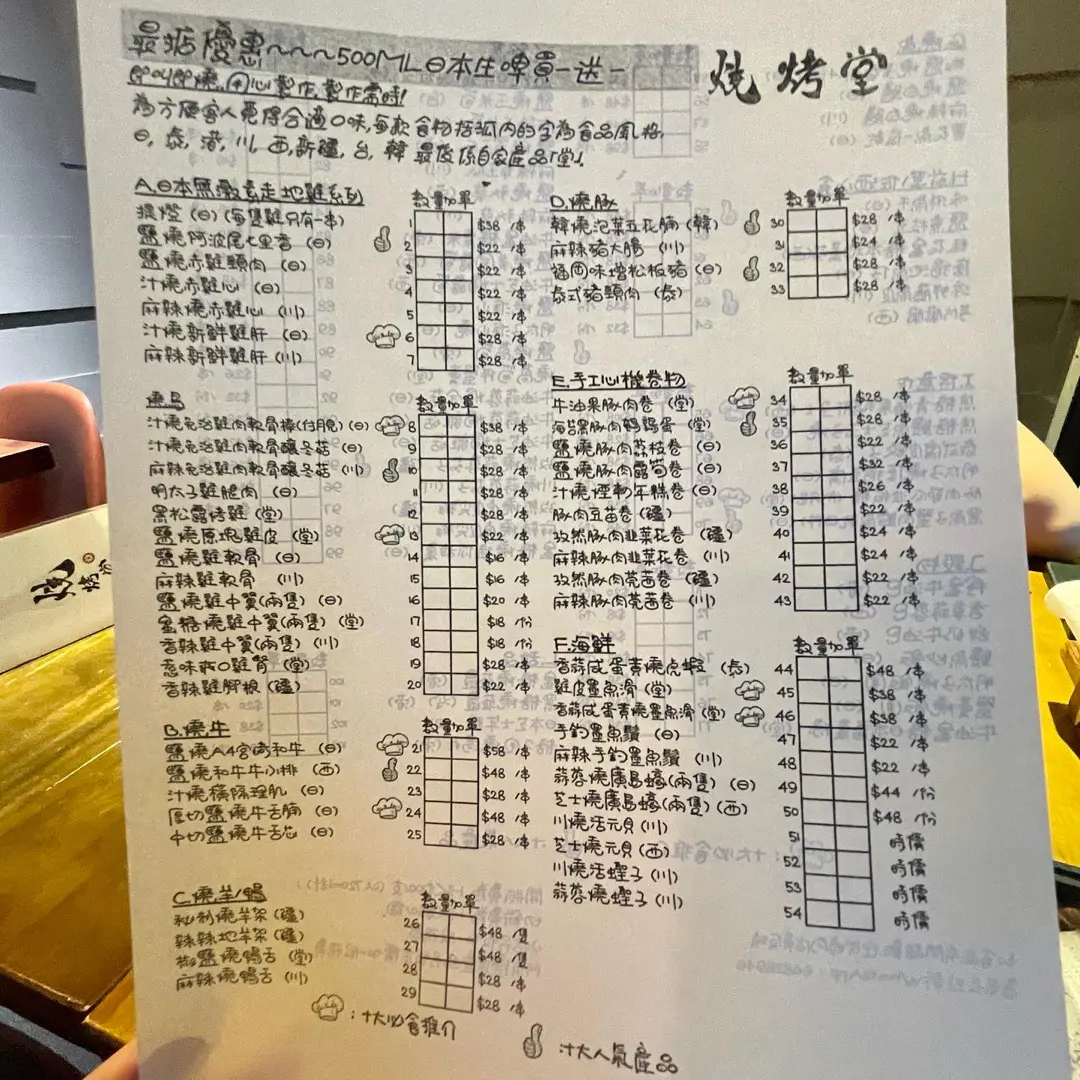 最抵優惠~~~500ML日本生啤買一送一
燒烤堂
即叫即燒,用心製作,製作需時!
為方便客人覓得合適口味,每款食物括弧內的字為食品風格,
日,泰,港,川,西,新疆,台,韓 最後係自家產品「堂」
A.日本無激素走地雞系列 數量加單
提燈 (日) (每隻雞只有一串) 1 $38 /串
鹽燒阿波尾七里香 (日) 2 $22 /串
鹽燒赤雞頸肉 (日) 3 $22 /串
汁燒赤雞心 (日) 4 $22 /串
麻辣燒赤雞心 (川) 5 $22 /串
汁燒新鮮雞肝 (日) 6 $28 /串
麻辣新鮮雞肝 (川) 7 $28 /串
燒鳥 數量加單
汁燒免治雞肉軟骨棒(付月見) (日) 8 $38 /串
汁燒免治雞肉軟骨釀冬菇 (日) 9 $28 /串
麻辣免治雞肉軟骨釀冬菇 (川) 10 $28 /串
明太子雞腿肉 (日) 11 $28 /串
黑松露烤雞 (堂) 12 $28 /串
鹽燒原塊雞皮 (堂) 13 $22 /串
鹽燒雞軟骨 (日) 14 $16 /串
麻辣雞軟骨 (川) 15 $16 /串
鹽燒雞中翼(兩隻) (日) 16 $20 /串
蜜糖燒雞中翼(兩隻) (堂) 17 $18 /份
香辣雞中翼(兩隻) (川) 18 $18 /份
惹味爽口雞腎 (堂) 19 $28 /串
香辣雞腳根 (疆) 20 $22 /串
B.燒牛 數量加單
鹽燒A4宮崎和牛 (日) 21 $58 /串
鹽燒和牛牛小排 (西) 22 $48 /串
汁燒橫隔理肌 (日) 23 $28 /串
厚切鹽燒牛舌腩 (日) 24 $48 /串
中切鹽燒牛舌芯 (日) 25 $28 /串
C.燒羊/鴨 數量加單
秘制燒羊架 (疆) 26 $48 /隻
辣辣地羊架 (疆) 27 $48 /隻
椒鹽燒鴨舌 (堂) 28 $28 /串
麻辣燒鴨舌 (川) 29 $28 /串
D.燒豚 數量加單
韓燒泡菜五花腩 (韓) 30 $28 /串
麻辣豬大腸 (川) 31 $24 /串
福岡味增松板豬 (日) 32 $28 /串
泰式豬頸肉 (泰) 33 $28 /串
E.手工心機卷物 數量加單
牛油果豚肉卷 (堂) 34 $28 /串
海苔黑豚肉鵪鶉蛋 (堂) 35 $28 /串
鹽燒豚肉荔枝卷 (日) 36 $22 /串
鹽燒豚肉露荀卷 (日) 37 $32 /串
汁燒煙肉年糕卷 (日) 38 $26 /串
豚肉豆苗卷 (疆) 39 $22 /串
孜然豚肉韭菜花卷 (疆) 40 $24 /串
麻辣豚肉韭菜花卷 (川) 41 $24 /串
孜然豚肉芫茜卷 (疆) 42 $22 /串
麻辣豚肉芫茜卷 (川) 43 $22 /串
F.海鮮 數量加單
香蒜咸蛋黃燒虎蝦 (泰) 44 $48 /串
雞皮墨魚滑 (堂) 45 $38 /串
香蒜咸蛋黃燒墨魚滑 (堂) 46 $38 /串
手釣墨魚鬚 (日) 47 $22 /串
麻辣手釣墨魚鬚 (川) 48 $22 /串
蒜蓉燒廣島蠔(兩隻) (日) 49 $44 /份
芝士燒廣島蠔(兩隻) (西) 50 $48 /份
川燒活元貝 (川) 51 時價
芝士燒元貝 (西) 52 時價
川燒活蟶子 (川) 53 時價
蒜蓉燒蟶子 (川) 54 時價
:十大必食推介
:十大人氣產品